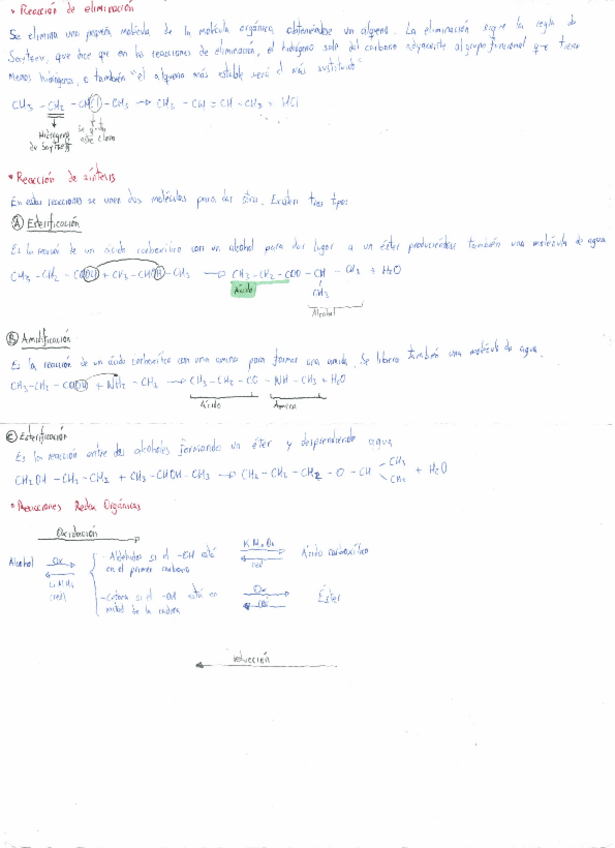 • Reacción de eliminación
Se elimina una pequeña molécula de la molécula orgánica obteniéndose un alqueno. La eliminación sigue la regla de
Saytzeff, que dice que en las reacciones de eliminación, el hidrógeno sale del carbono adyacente al grupo funcional que tiene
menos hidrógenos, o también "el alqueno más estable será el más sustituido"
CH3 - CH2 - CHCl - CH3 → CH3 - CH = CH - CH3 + HCl
Hidrógeno
de Saytzeff
Se quita
este cloro
• Reacción de síntesis
En estas reacciones se unen dos moléculas para dar otra. Existen tres tipos
A Esterificación
Es la reacción de un ácido carboxílico con un alcohol para dar lugar a un éster produciéndose también una molécula de agua
CH3 - CH2 - COOH + CH3 - CHOH - CH3 → CH3 - CH2 - COO - CH - CH3 + H2O
CH3
Ácido
Alcohol
B Amidificación
Es la reacción de un ácido carboxílico con una amina para formar una amida. Se libera también una molécula de agua.
CH3-CH2 - COOH + NH2 - CH3 → CH3 - CH2 - CO - NH - CH3 + H2O
Ácido Amina
C Esterificación
Es la reacción entre dos alcoholes formando un éter y desprendiendo agua
CH2OH - CH2 - CH3 + CH3 - CHOH - CH3 → CH3 - CH2 - CH2 - O - CH CH3 CH3 + H2O
• Reacciones Redox Orgánicas
Oxidación
Alcohol Ox
(red)
- Aldehídos si el -OH está
en el primer carbono
KMnO4
red
Ácido carboxílico
- Cetona si el -OH está en
mitad de la cadena
Ox
red
Éster
reducción